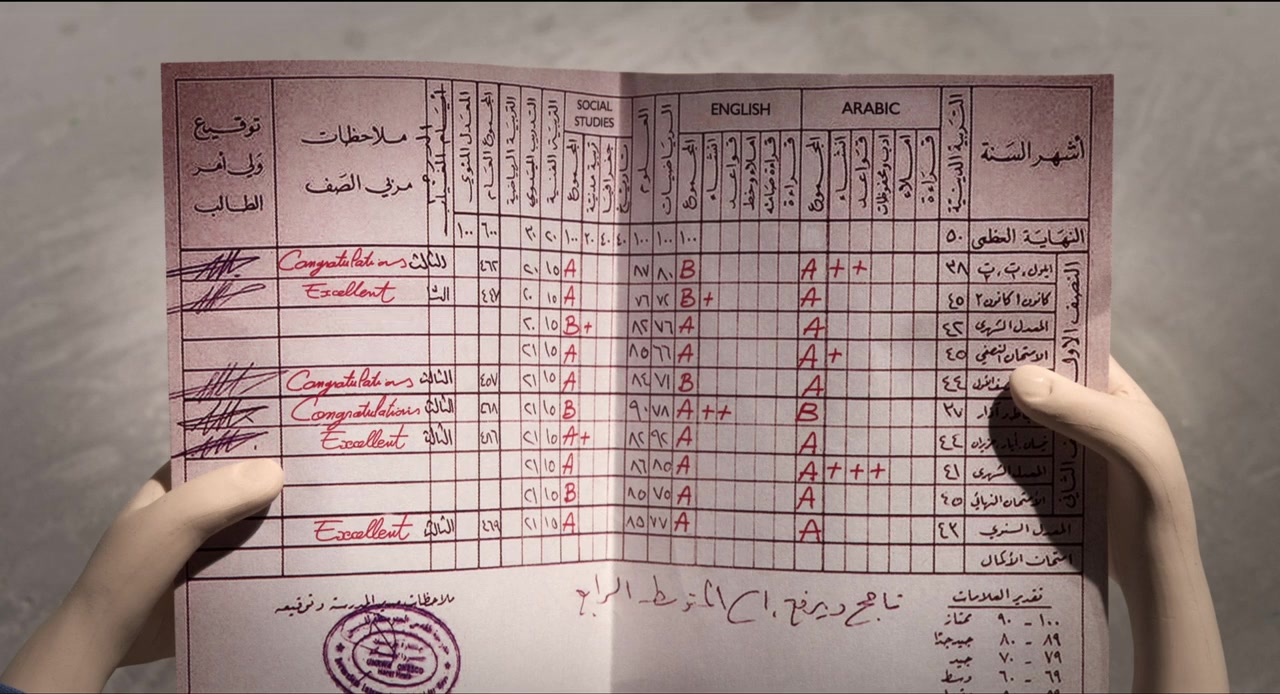 أشهر السَنة
التربية الدينية
ARABIC
قراءة
املاء
ادب ومحفوظات
قواعد
انشاء
المجموع
ENGLISH
قراءة
قراءة صامتة
املاء وخط
قواعد
انشاء
المجموع
الرياضيات
العلوم
SOCIAL
STUDIES
تاريخ
جغرافيا
تربية مدنية
المجموع
التربية الفنية
التدريب المهني
التربية الرياضية
المجموع العام
المعدل المئوي
ملاحظات
مربي الصَف
توقيع
وَلي أمر
الطالب
النهَاية العظمى ٥٠ ١٠٠ ١٠٠ ١٠٠ ٤٠ ٤٠ ٢٠ ١٠٠ ٢٠ ٣٠ ٦٠٠ ١٠٠
النصف الاول
ايلول، ت، ت ٣٨ A++ B ٨٠ ٨٧ A ١٥ ٢٠ ٤٦٢ الثالث Congratulations
كانون١ كانون٢ ٤٥ A B+ ٧٢ ٧٦ A ١٥ ٢٠ ٤٤٧ Excellent
المعدل الشهري ٤٢ A A ٧٦ ٨٢ B+ ١٥ ٢٠
الامتحان النصفي ٤٥ A+ A ٦٦ ٨٥ A ١٥ ٢١
٤٤ A B ٧١ ٨٤ A ١٥ ٢١ ٤٥٧ الثالث Congratulations
٣٧ B A++ ٧٨ ٩٠ B ١٥ ٢١ ٤٦٨ الثالث Congratulations
نيسان، أيار، حزيران ٤٤ A A ٩٢ ٨٢ A+ ١٥ ٢١ ٤٨٦ الثالث Excellent
المعدل الشهري ٤١ A+++ A ٨٥ ٨٦ A ١٥ ٢١
الامتحان النهائي ٤٥ A A ٧٥ ٨٥ B ١٥ ٢١
المعدل السنوي ٤٣ A A ٧٧ ٨٥ A ١٥ ٢١ ٤٦٩ الثالث Excellent
امتحان الأكمال
ناجح ويرفع الى المتوسط الرابع
ملاحظات مدير المدرسة وتوقيعه
UNRWA UNESCO
تقدير العلامات
١٠٠ - ٩٠ ممتاز
٨٩ - ٨٠ جيد جدًا
٧٩ - ٧٠ جيد
٦٩ - ٦٠ وسط